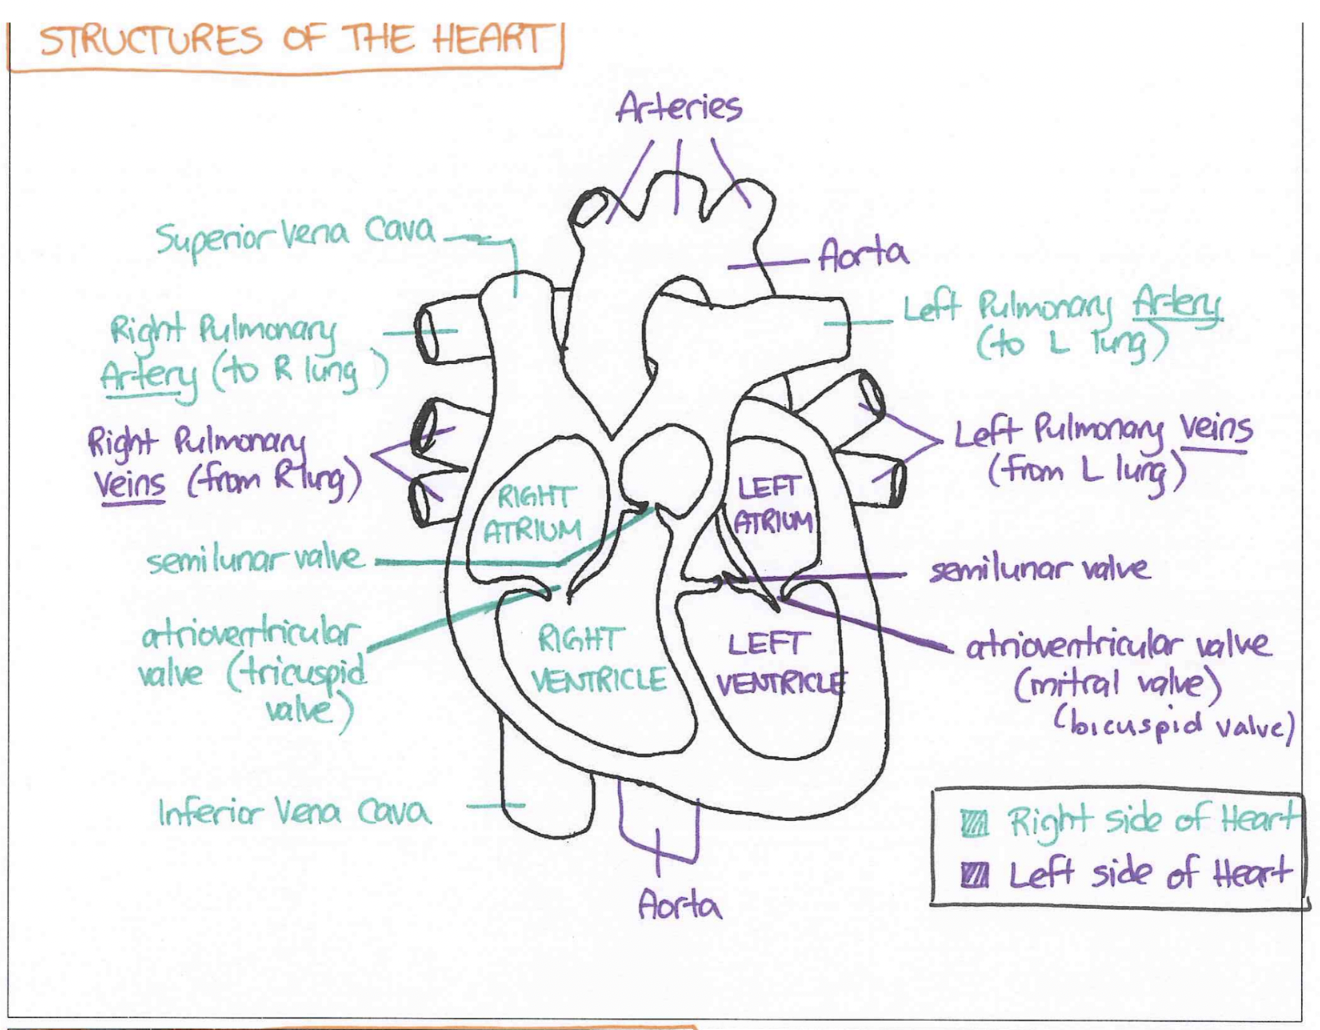 STRUCTURES OF THE HEART
Arteries
Superior Vena Cava
Aorta
Right Pulmonary
Artery (to R lung)
Left Pulmonary Artery
(to L lung)
Right Pulmonary
Veins (from R lung)
Left Pulmonary Veins
(from L lung)
RIGHT
ATRIUM
LEFT
ATRIUM
semilunar valve
semilunar valve
atrioventricular
valve (tricuspid
valve)
RIGHT
VENTRICLE
LEFT
VENTRICLE
atrioventricular valve
(mitral valve)
(bicuspid valve)
Inferior Vena Cava
Aorta
Right side of Heart
Left side of Heart